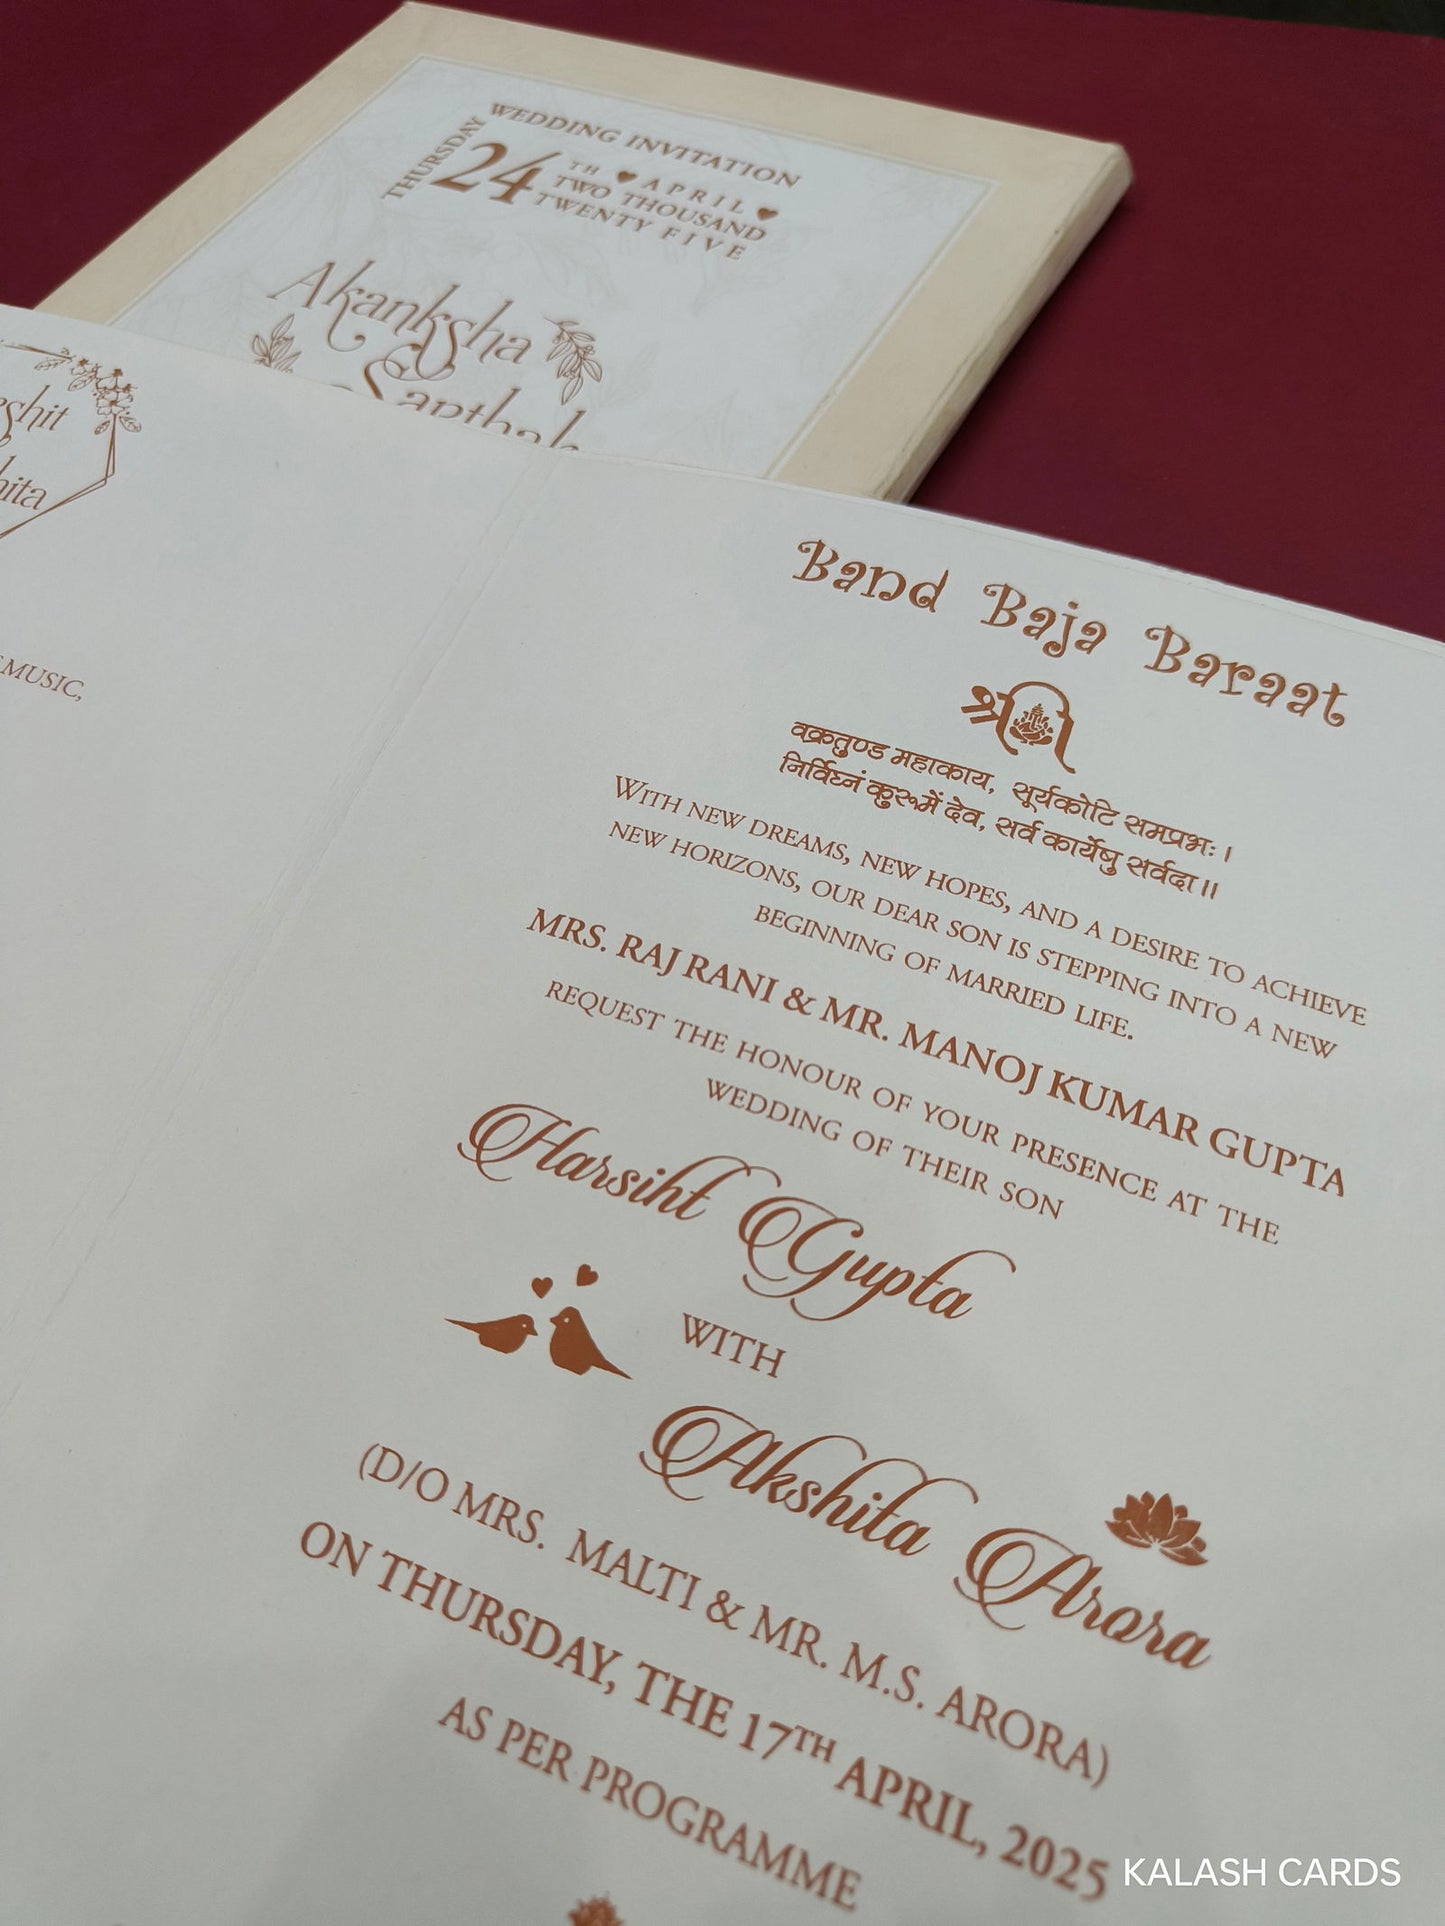 WEDDING INVITATION
THURSDAY
24TH APRIL
TWO THOUSAND
TWENTY FIVE
Akanksha
MUSIC,
Band Baja Baraat
श्री
वक्रतुण्ड महाकाय, सूर्यकोटि समप्रभः।
निर्विघ्नं कुरूमें देव, सर्व कार्येषु सर्वदा॥
WITH NEW DREAMS, NEW HOPES, AND A DESIRE TO ACHIEVE
NEW HORIZONS, OUR DEAR SON IS STEPPING INTO A NEW
BEGINNING OF MARRIED LIFE.
MRS. RAJ RANI & MR. MANOJ KUMAR GUPTA
REQUEST THE HONOUR OF YOUR PRESENCE AT THE
WEDDING OF THEIR SON
Harsiht Gupta
WITH
Akshita Arora
(D/O MRS. MALTI & MR. M.S. ARORA)
ON THURSDAY, THE 17TH APRIL, 2025
AS PER PROGRAMME
KALASH CARDS